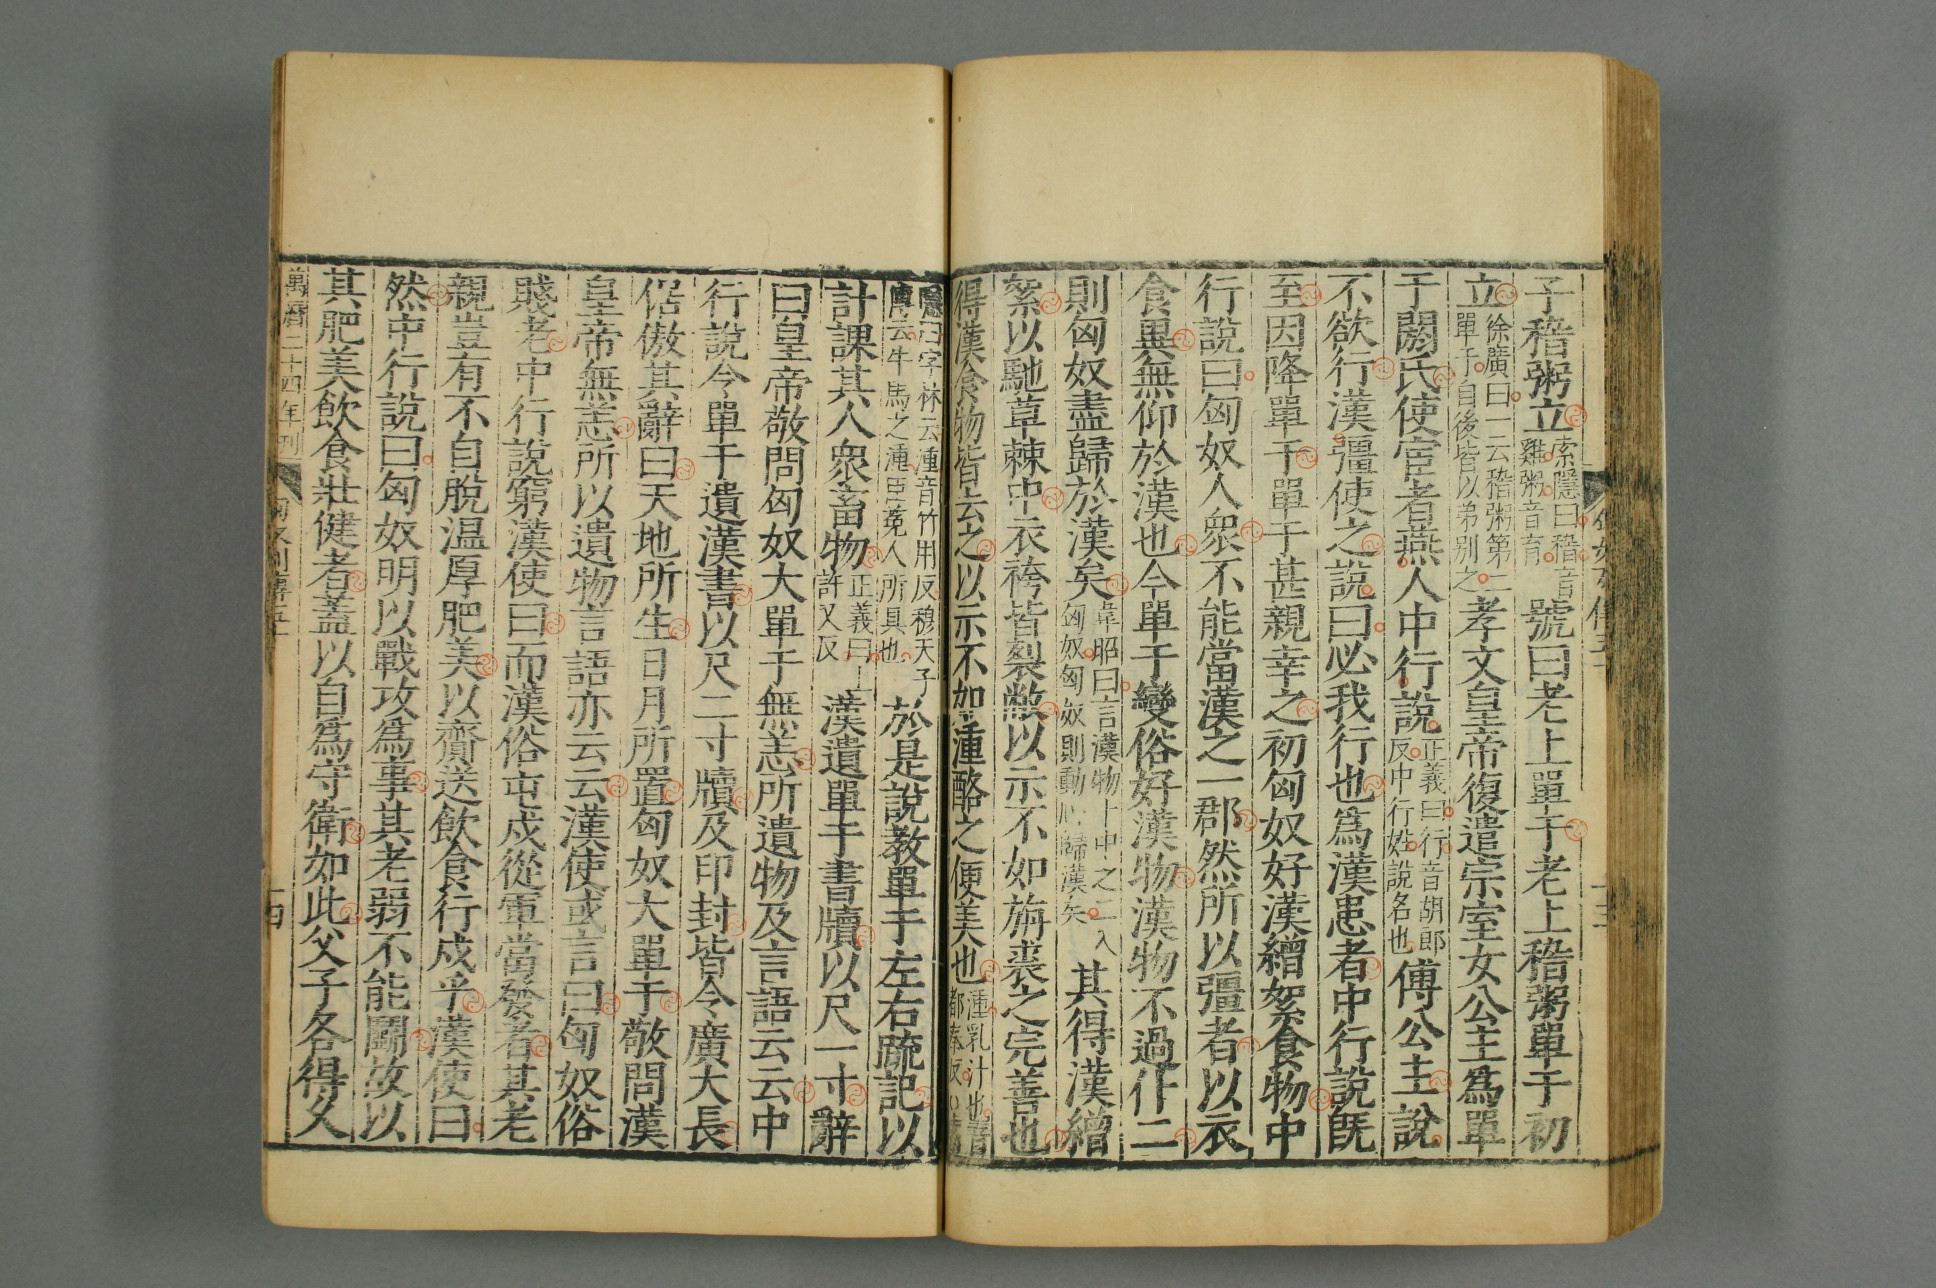 子稽粥立索隱曰稽音雞粥音育號曰老上單于老上稽粥單于初
立徐廣曰一云稽粥第二單于自後皆以弟别之孝文皇帝復遣宗室女公主爲單
于閼氏使宦者燕人中行說正義曰行音胡郎反中行姓說名也傅公主說
不欲行漢彊使之說曰必我行也爲漢患者中行說既
至因降單于單于甚親幸之初匈奴好漢繒絮食物中
行說曰匈奴人衆不能當漢之一郡然所以彊者以衣
食異無仰於漢也今單于變俗好漢物漢物不過什二
則匈奴盡歸於漢矣韋昭曰言漢物十中之二入匈奴匈奴則動心歸漢矣其得漢繒
絮以馳草棘中衣袴皆裂敝以示不如旃裘之完善也
得漢食物皆去之以示不如湩酪之便美也湩乳汁也都奉反
隱曰字林云湩音竹用反穆天子傳云牛馬之湩臣菟人所具也於是說教單于左右疏記以
計課其人衆畜物正義曰上許又反漢遺單于書牘以尺一寸辭
曰皇帝敬問匈奴大單于無恙所遺物及言語云云中
行說令單于遺漢書以尺二寸牘及印封皆令廣大長
倨傲其辭曰天地所生日月所置匈奴大單于敬問漢
皇帝無恙所以遺物言語亦云云漢使或言曰匈奴俗
賤老中行說窮漢使曰而漢俗屯戍從軍當發者其老
親豈有不自脫温厚肥美以齎送飲食行戍乎漢使曰
然中行說曰匈奴明以戰攻爲事其老弱不能鬬故以
其肥美飲食壯健者蓋以自爲守衛如此父子各得久
萬曆二十四年刊 匈奴列傳五十 十四